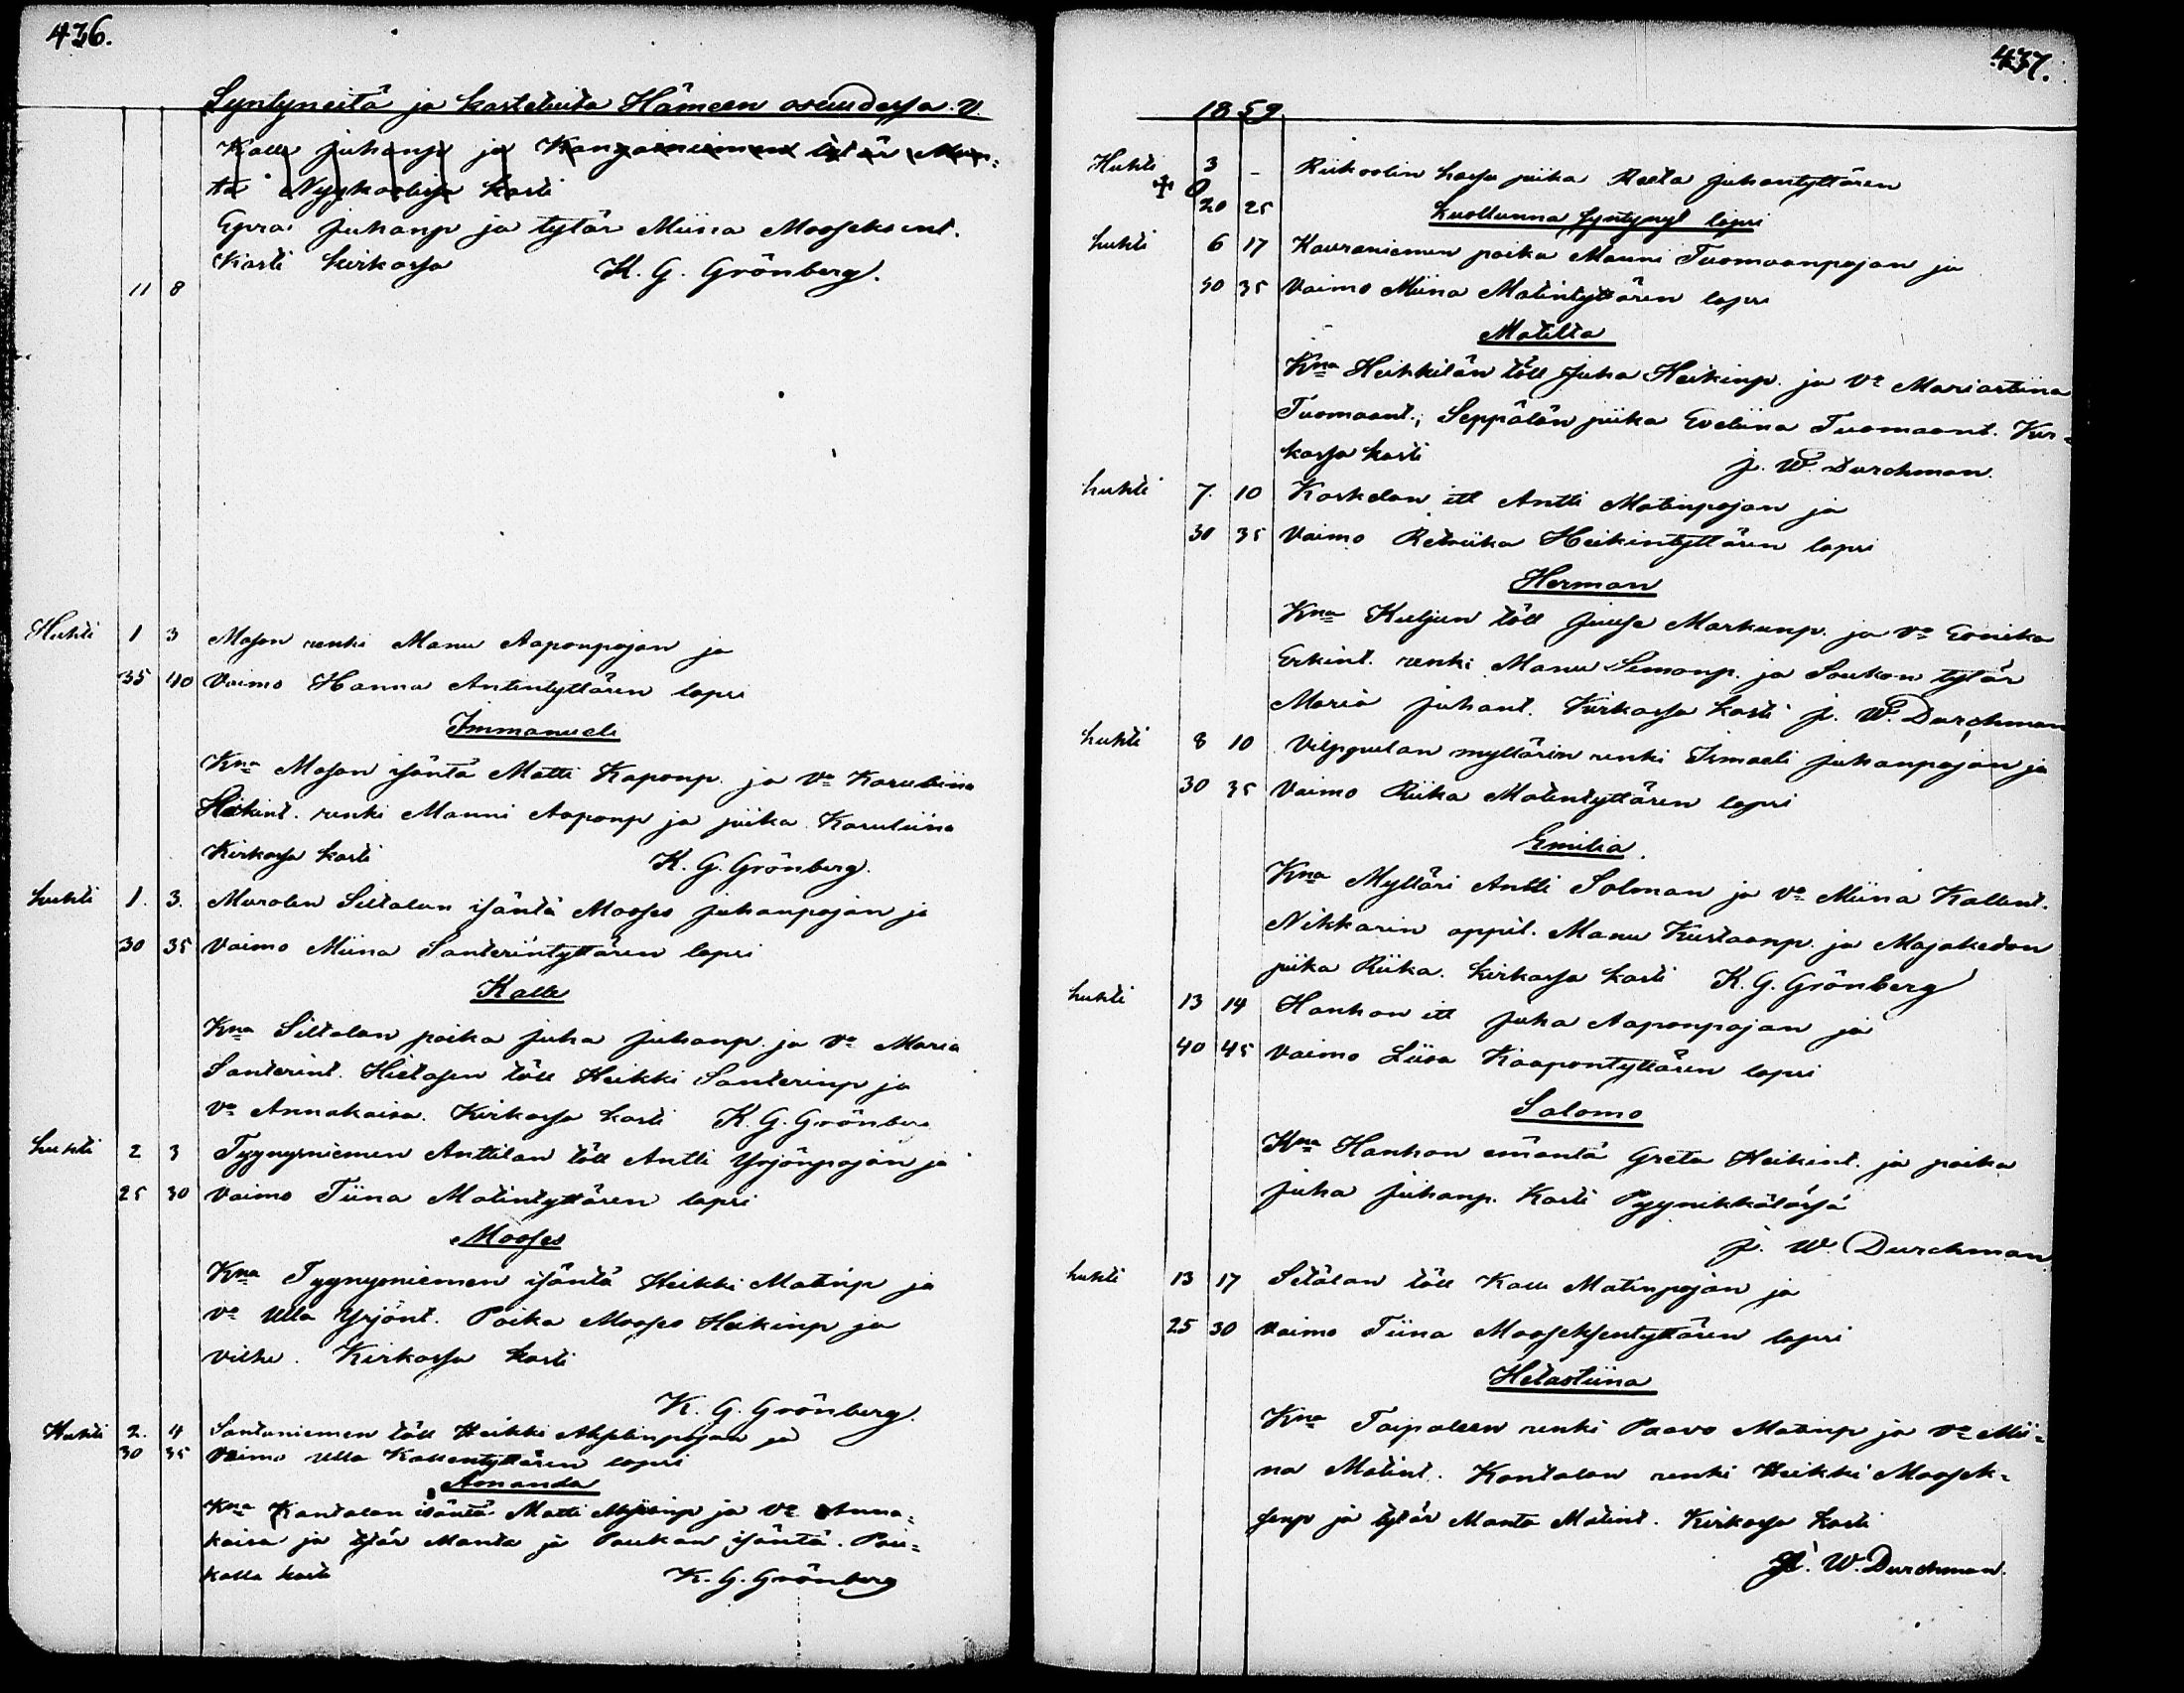 436.
Syntyneitä ja kasteluita Hämeen osuudessa. V.
Kalle Juhanp ja Kangasniemen tytär Man=
ta Nygkoolissa kasti
Epra Juhanp ja tytär Miina Mooseksent.
Kasti kirkossa K. G. Grönberg.
11 8
Huhti 1 3 Mason renki Manu Aaponpojan ja
35 40 Vaimo Hanna Antintyttären lapsi
Immanueli
Kna Mason isäntä Matti Kaponp. ja Vo Karuliina
Heikint. renki Manni Aaponp ja piika Karuliina
Kirkossa kasti K. G. Grönberg.
huhti 1. 3. Murolen Siltalan isäntä Mooses Juhanpojan ja
30 35 Vaimo Miina Santerintyttären lapsi
Kalle
Kna Siltalan poika Juha Juhanp. ja Vo Maria
Santerint. Hietasen töll Heikki Santerinp ja
Vo Annakaisa. Kirkossa kasti K. G. Grönberg
huhti 2 3 Tyynyniemen Anttilan töll Antti Yrjönpojan ja
25 30 Vaimo Tiina Matintyttären lapsi
Mooses
Kna Tyynyniemen isäntä Heikki Matinp ja
Vo Ulla Yrjönt. Poika Mooses Heikinp ja
. Kirkossa kasti
K. G. Grönberg.
Huhti 2. 4 Santaniemen töll Heikki Akselinpojan ja
30 35 Vaimo Ulla Kallentyttären lapsi
Amanda
Kna Kantalan isäntä Matti ja Vo Anna=
kaisa ja tytär Manta ja Paukan isäntä. Pau=
kalla kasti K. G. Grönberg
437.
1859
Huhti 3 - Riikoolin piika Reeta Juhantyttären
20 25 kuolluna syntynyt lapsi
huhti 6 17 Kauraniemen poika Manni Tuomaanpojan ja
30 35 Vaimo Miina Matintyttären lapsi
Matilta
Kna Heikkilän töll Juha Heikinp. ja Vo Mariastiina
Tuomaant.; Seppälän piika Eveliina Tuomaant. Kir=
kossa kasti J. W. Durchman.
huhti 7. 10 Koskelan itl Antti Matinpojan ja
30 35 Vaimo Retriika Heikintyttären lapsi
Herman
Kna Kuljun töll Juuse Markunp. ja Vo Everiika
Erkint. renki Manu Simonp. ja Soukon tytär
Maria Juhant. Kirkossa kasti J. W. Durchman
huhti 8 10 Vilppulan myllärin renki Ismaeli Juhanpojan ja
30 35 Vaimo Riika Matintyttären lapsi
Emilia.
Kna Mylläri Antti Solman ja Vo Miina Kallent.
Nikkarin oppil. Manu Kustaanp. ja Majakedon
piika Riika. Kirkossa kasti K. G. Grönberg
huhti 13 14 Hanhon itl Juha Aaponpojan ja
40 45 Vaimo Liisa Kaapontyttären lapsi
Salomo
Kna Hanhon emäntä Greta Heikint. ja poika
Juha Juhanp. Kasti Pyynikkälässä
J. W. Durchman
huhti 13 17 Setälan töll Kalle Matinpojan ja
25 30 Vaimo Tiina Mooseksentyttären lapsi
Hetastiina
Kna Taipaleen renki Paavo Matinp ja Vo Mii=
na Matint. Kantalan renki Heikki Moosek=
senp ja tytär Manta Matint. Kirkossa kasti
J. W. Durchman.